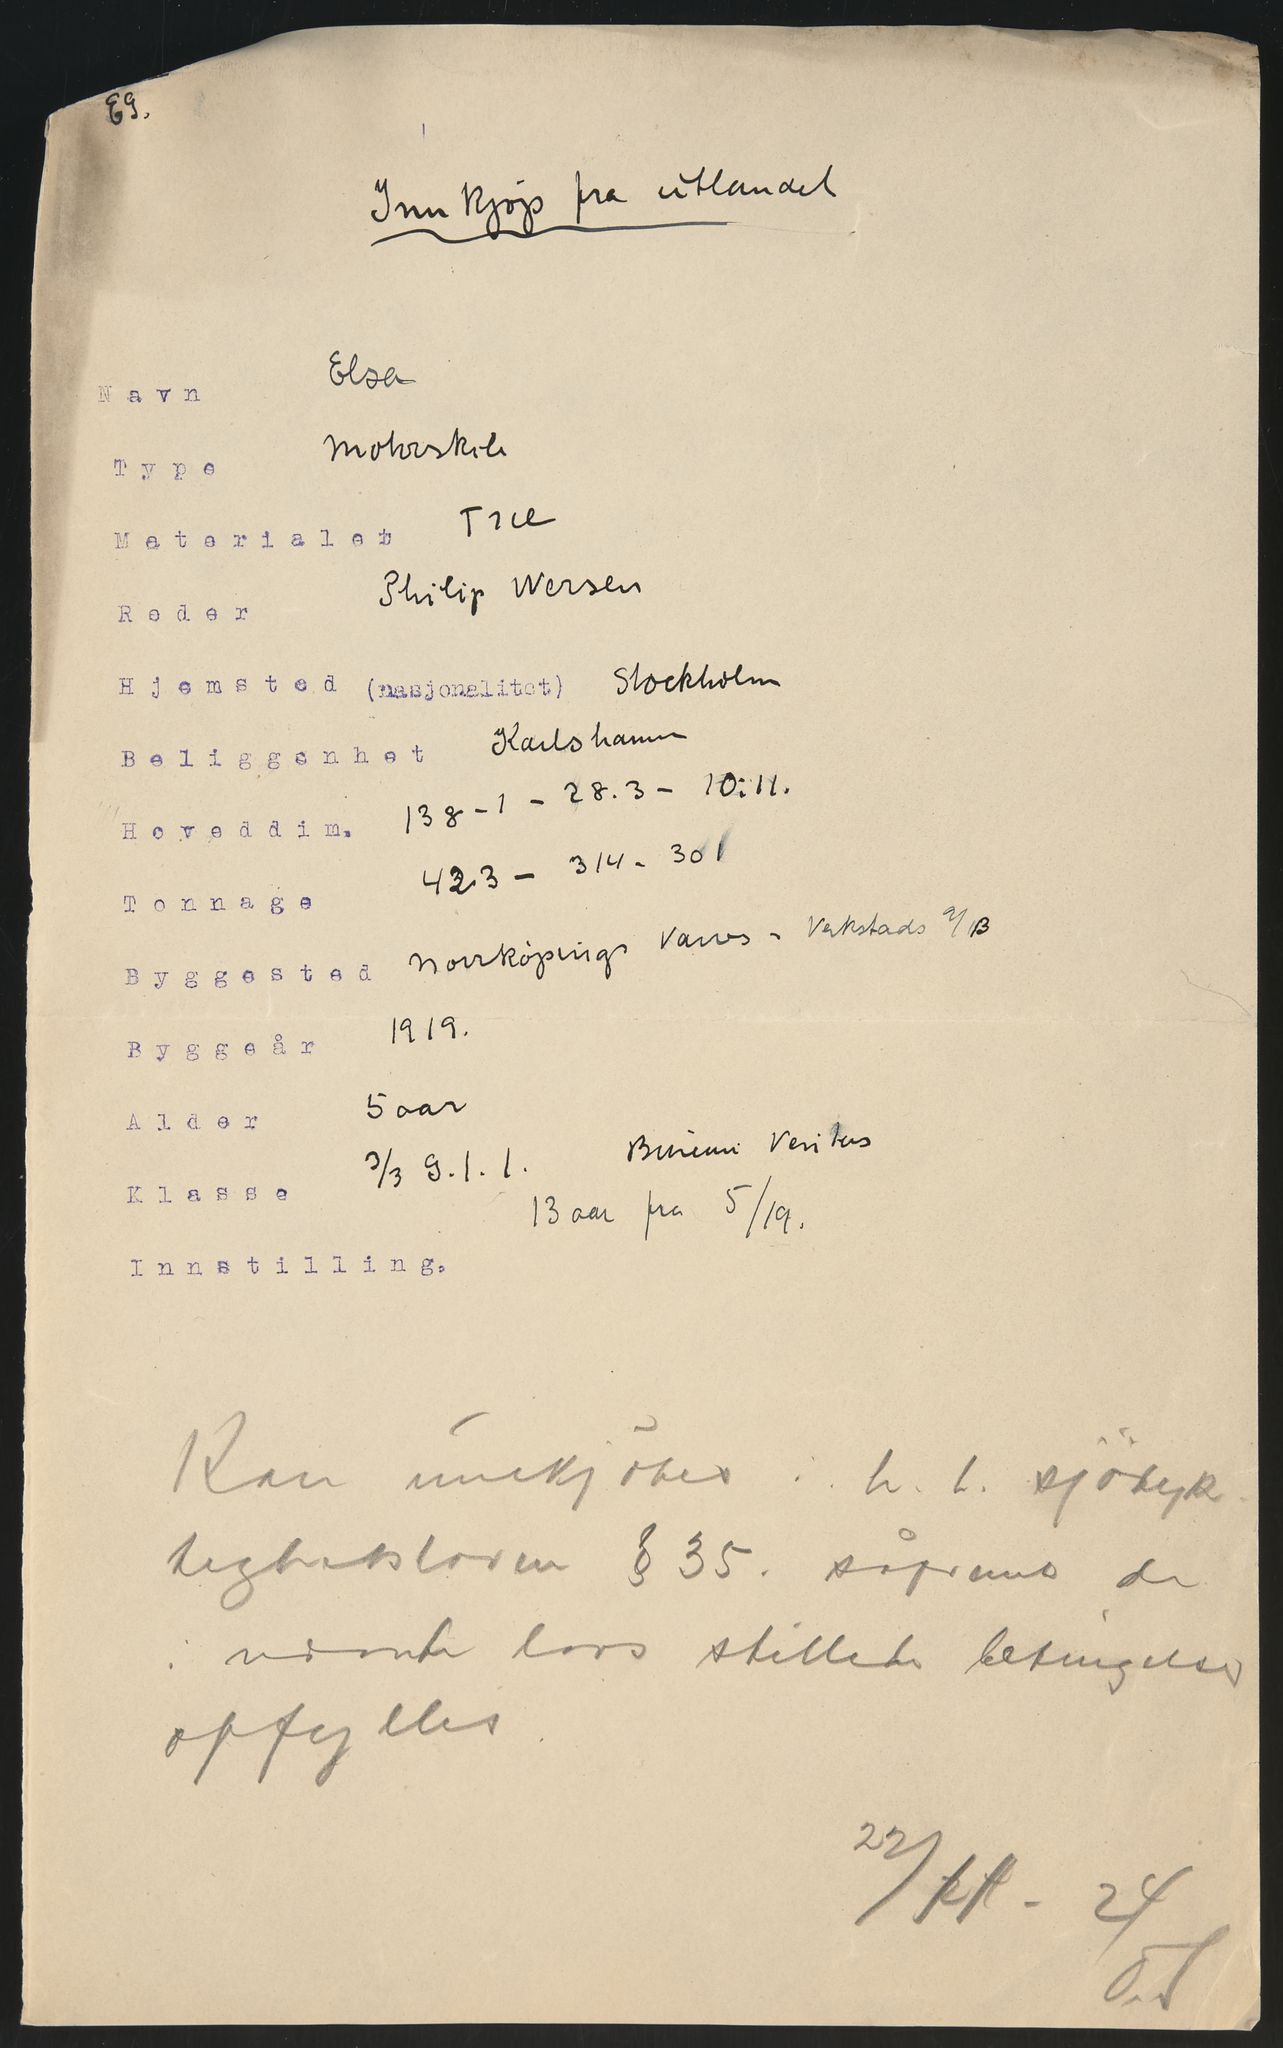 Eg.
Innkjøp fra utlandet
Navn Elsa
Type Motorskib
Materialet Træ
Reder Philip Wersen
Hjemsted (nasjonalitet) Stockholm
Beliggenhet Karlshamn
Hoveddim. 138-1 - 28.3 - 10.11.
Tonnage 423 - 314 - 301
Byggested Norrköpings Varvs - Verkstads A/B
Byggeår 1919.
Alder 5 aar
Klasse 3/3 G.1.1. Bureau Veritas
13 aar fra 5/19.
Innstilling.
Kan innkjöbes i h. t. sjödyk-
tighetsloven § 35. såfremt de
i nævnte lovs stillete betingelser
opfylles.
22/ - 24